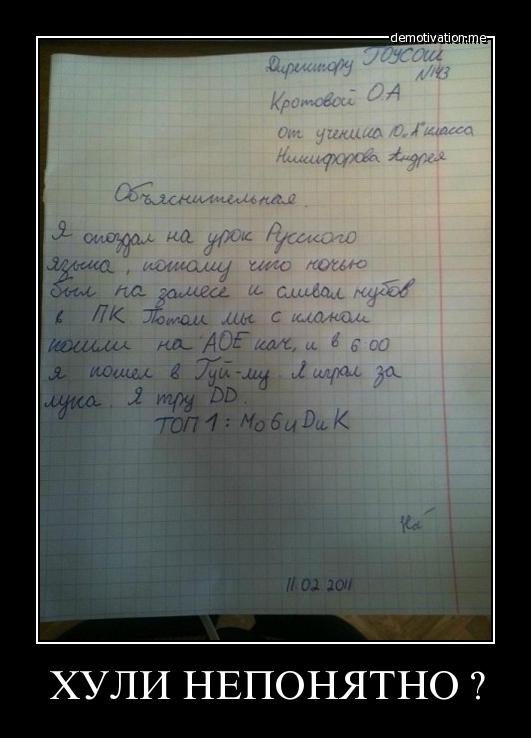 demotivation.me
Директору ГОУСОШ
№143
Кротовой О.А
от ученика 10 „А" класса
Никифорова Андрея
Объяснительная.
Я опоздал на урок Русского
языка, потому что ночью
был на замесе и сливал нубов
в ПК. Потом мы с кланом
пошли на АОЕ кач, и в 6:00
я пошел в Гуй-му. Я играл за
лука. Я тру DD.
ТОП 1: МоБиDиК
11.02.2011
ХУЛИ НЕПОНЯТНО ?